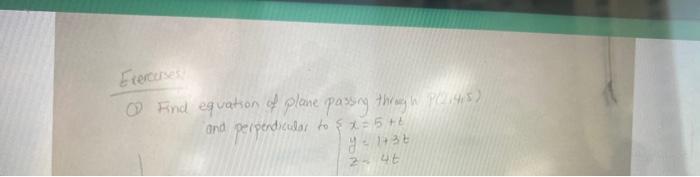 Exercises:
① Find equation of plane passing through P(2,4,5)
and perpendicular to { x = 5 + t
y = 1 + 3t
z = 4t